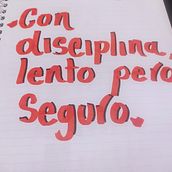 -Con
disciplina,
lento pero
Seguro.